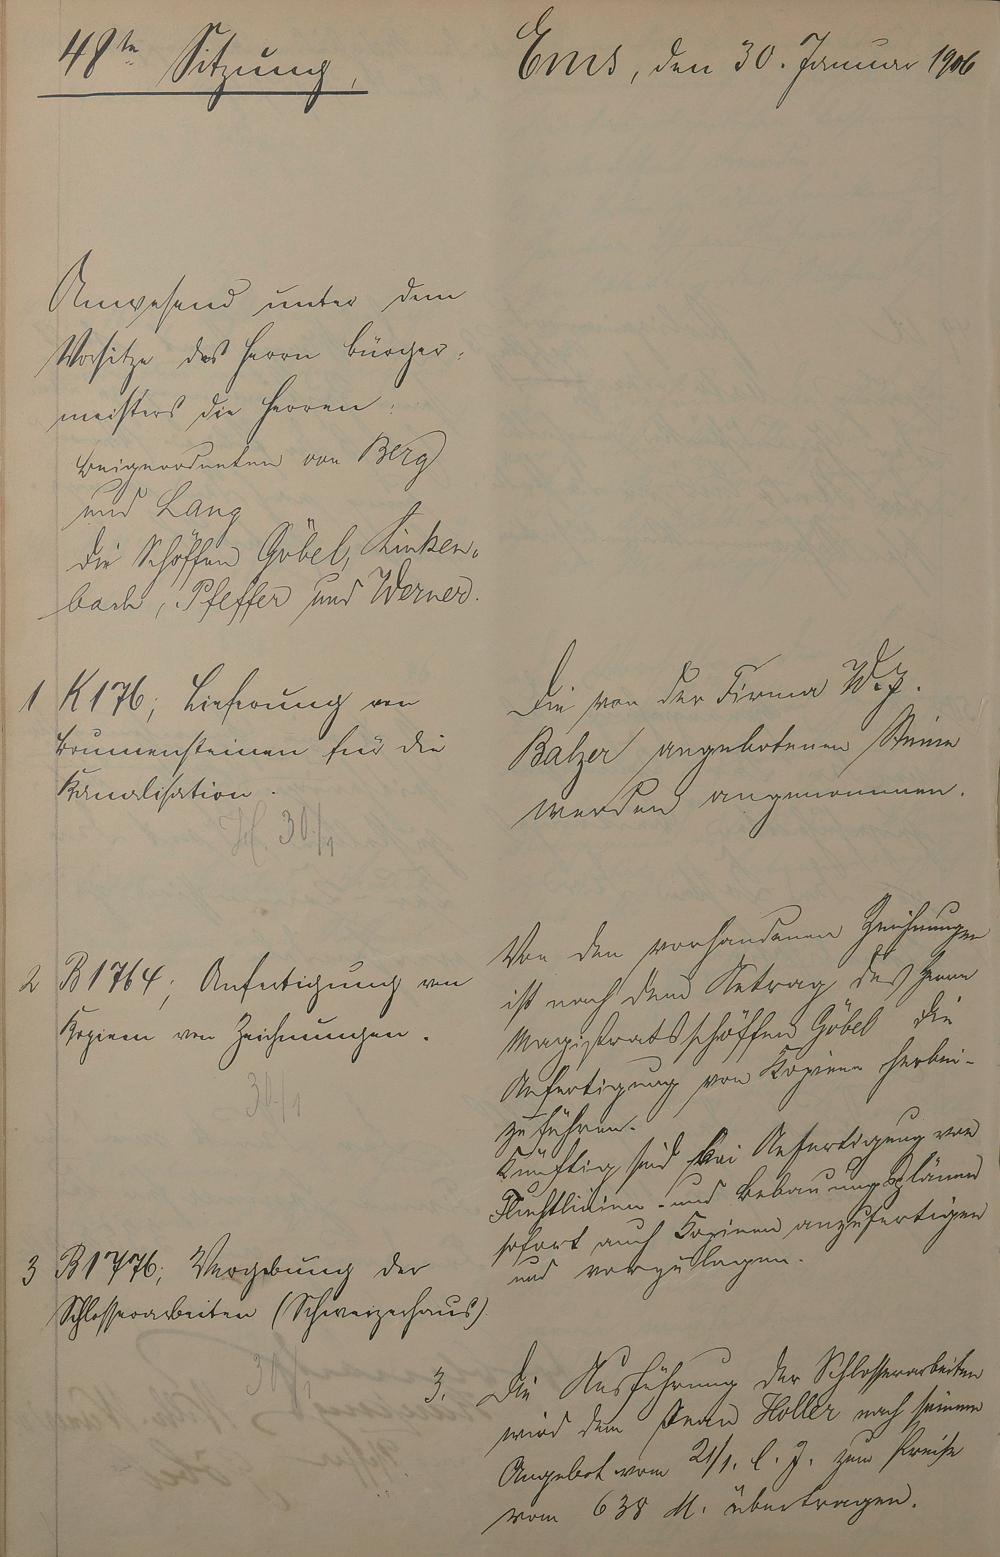 48te Sitzung.
Ems, den 30. Januar 1906
Anwesend unter dem
Vorsitze des Herrn Bürger-
meisters die Herren:
Beigeordneten von Berg
und Lang
die Schöffen Göbel, Linken-
bach, Pfeffer und Werner.
1 K 176; Lieferung von
Brunnensteinen für die
Kanalisation.
30/1
Die von der Firma W. J.
Balzer angebotenen Steine
werden angenommen.
2 B 1764; Anfertigung von
Kopieen von Zeichnungen.
30/1
Von den vorhandenen Zeichnungen
ist nach dem Antrag des Herrn
Magistratsschöffen Göbel die
Anfertigung von Kopieen herbei-
zuführen.
Künftig sind bei Anfertigung von
Fluchtlinien- und Bebauungsplänen
sofort auch Kopieen anzufertigen
und vorzulegen.
3 B 1776; Vergebung der
Schlosserarbeiten (Schweizerhaus)
30/1
3. Die Ausführung der Schlosserarbeiten
wird dem Jean Holler nach seinem
Angebot vom 21/1. l. J. zum Preise
vom 638 M. übertragen.